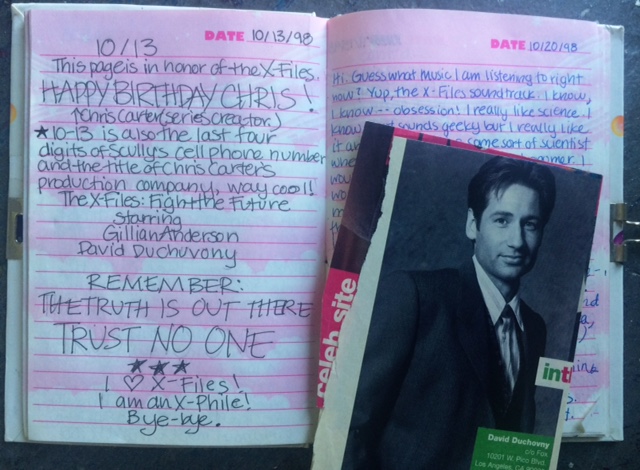 DATE 10/13/98
10/13
This page is in honor of the X-Files.
HAPPY BIRTHDAY CHRIS!
↑Chris Carter (series creator)
★10-13 is also the last four
digits of Scully's cell phone number
and the title of Chris Carter's
production company, way cool!
The X-Files: Fight the Future
starring
Gillian Anderson
David Duchuvony
REMEMBER:
THE TRUTH IS OUT THERE
TRUST NO ONE
★★★
I ♡ X-Files!
I am an X-Phile!
Bye-bye.
DATE 10/20/98
Hi. Guess what music I am listening to right
now? Yup, the X-Files soundtrack. I know,
I know -- obsession! I really like science. I
know sounds geeky but I really like
it some sort of scientist
celeb site
int
David Duchovny
c/o Fox
10201 W. Pico Blvd.
Los Angeles, CA